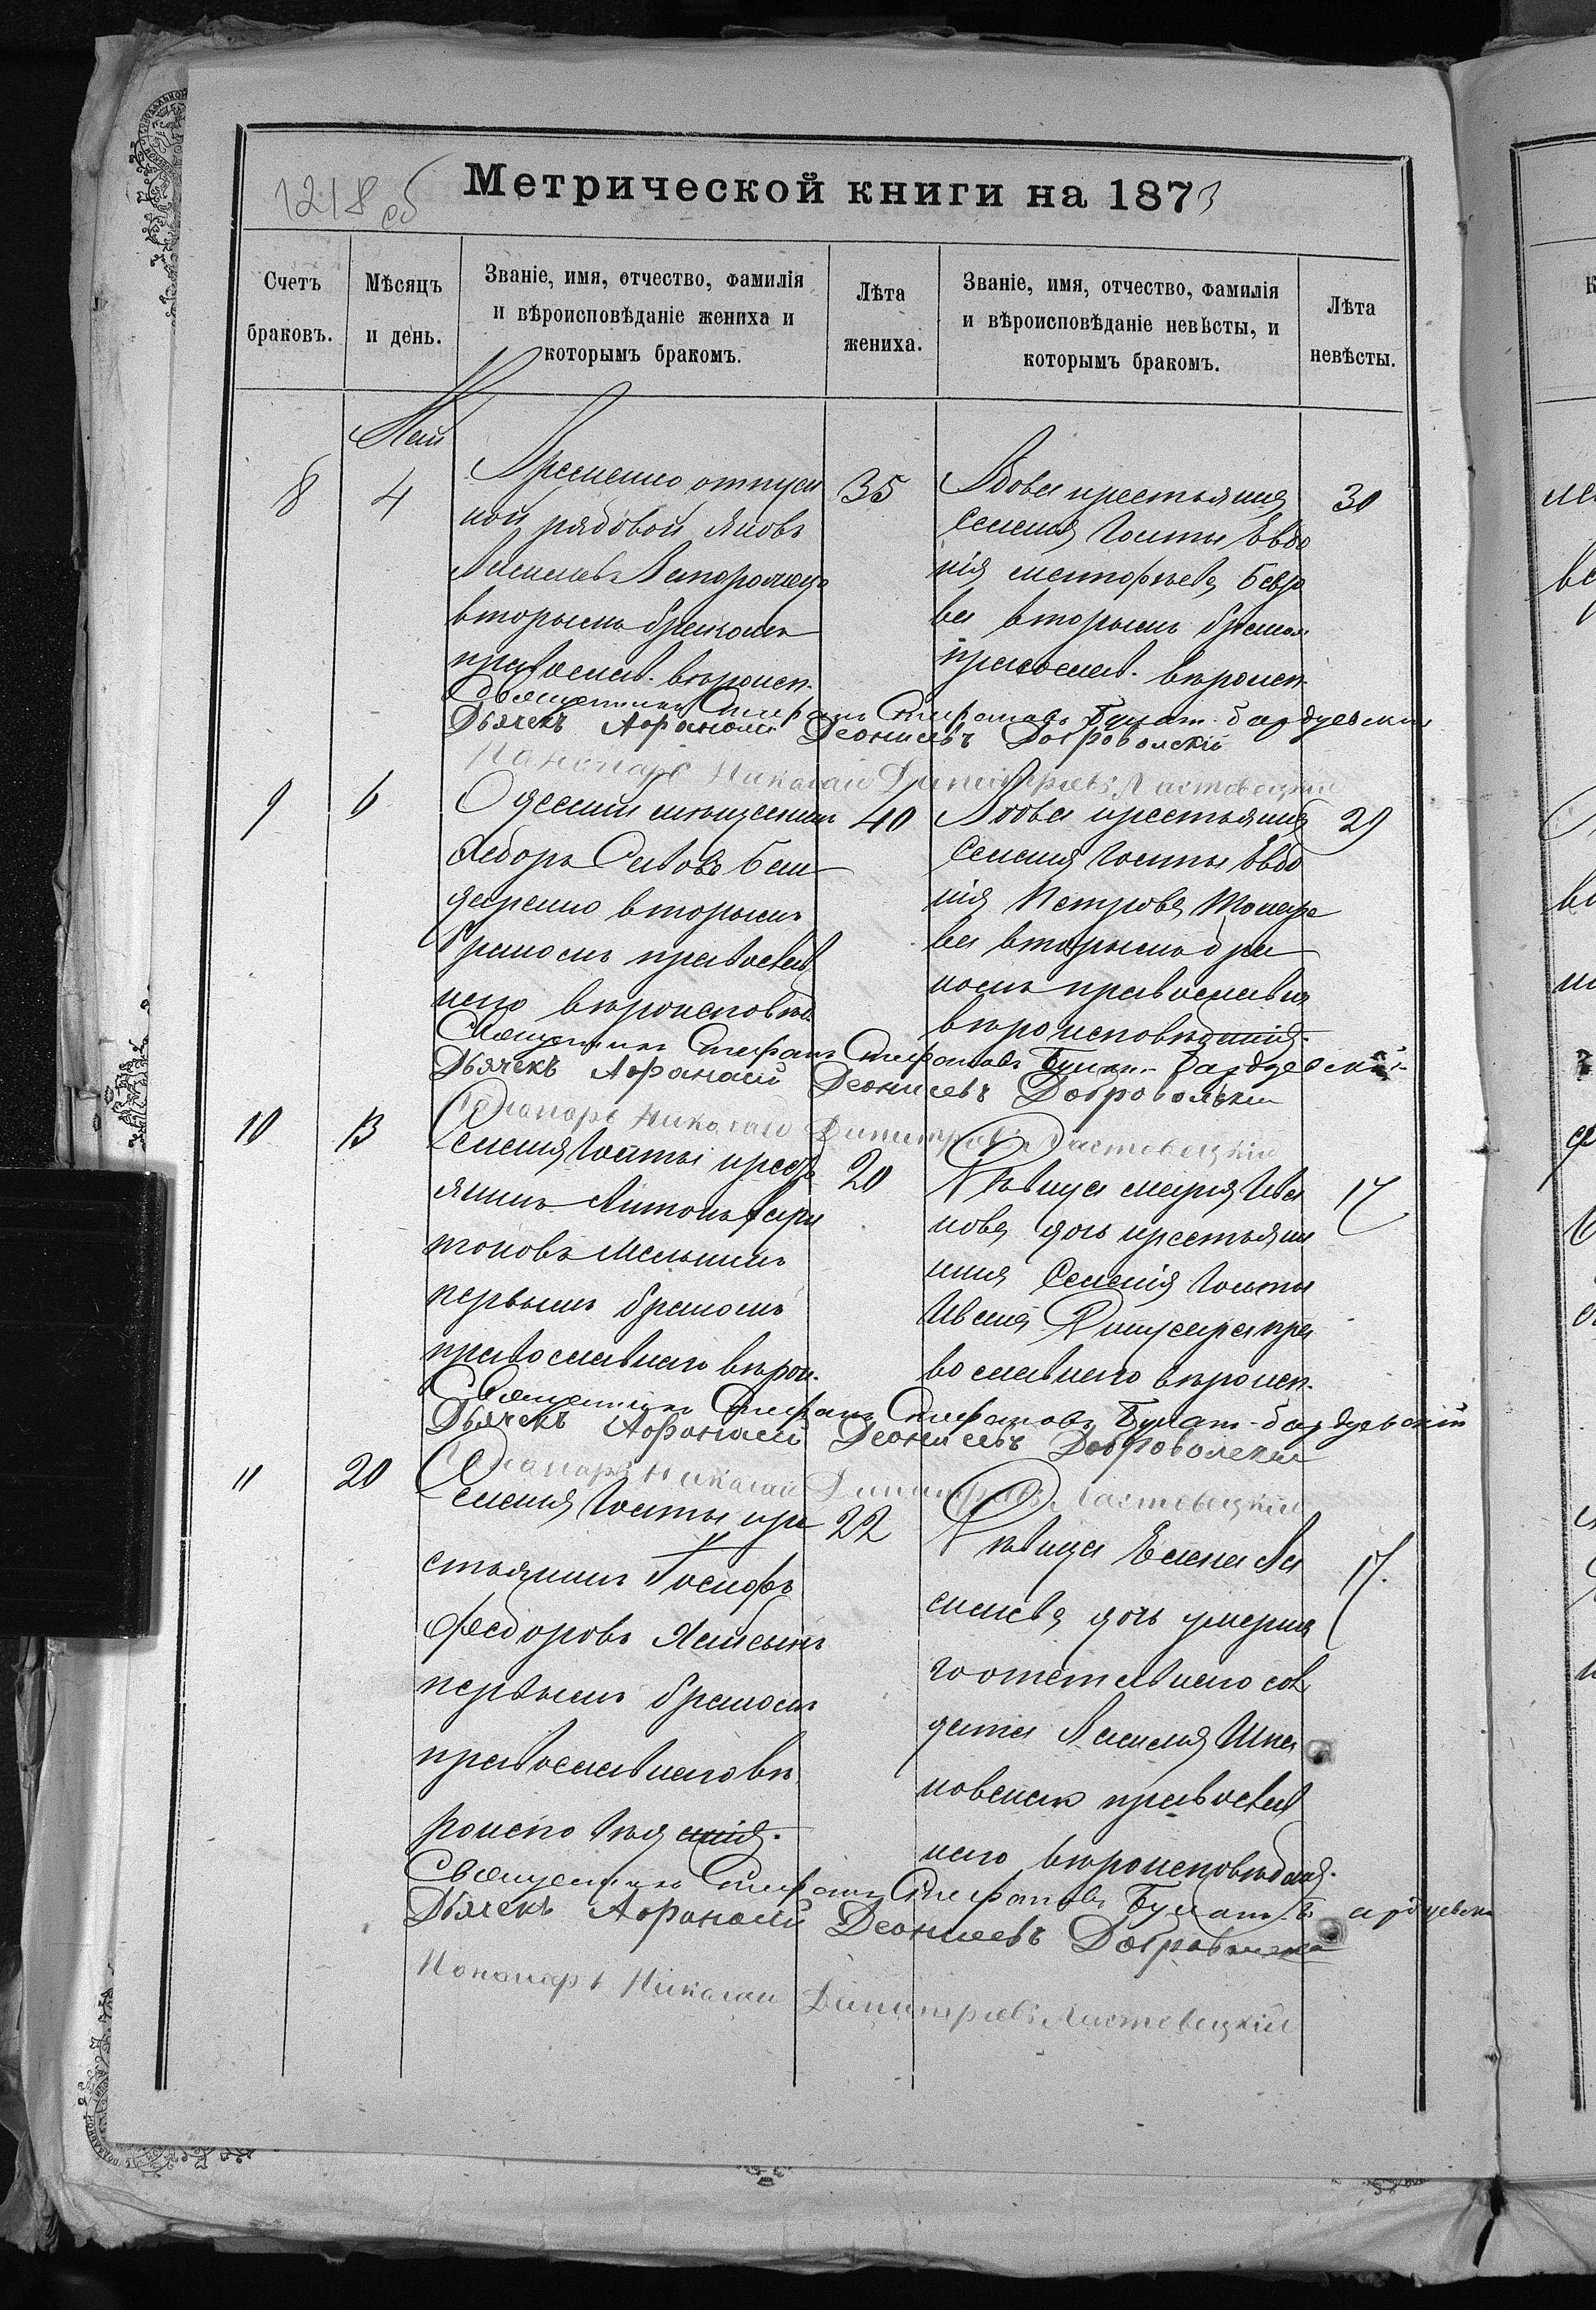 1218 об
Метрической книги на 1873
Счетъ браковъ.
Мѣсяцъ и день.
Званіе, имя, отчество, фамилія и вѣроисповѣданіе жениха и которымъ бракомъ.
Лѣта жениха.
Званіе, имя, отчество, фамилія и вѣроисповѣданіе невѣсты, и которымъ бракомъ.
Лѣта невѣсты.
Май
8
4
Временно отпуск
ной рядовой Яковъ
Запорожецъ
вторымъ бракомъ
православ. вѣроисп.
35
Вдова крестьянка
селенія Гоиты Евдо
кія
ва вторымъ бракомъ
православ. вѣроисп.
30
Священникъ Стефанъ Стефановъ Булат-
Дьячекъ Афанасій Деонисевъ Добровольскій
Понамарь Николай Димитріевъ Ластовецкій
9
6
Одесскій мѣщанинъ
Федоръ Савовъ Бон
даренко вторымъ
бракомъ православ
наго вѣроисповѣд.
40
Вдова крестьянка
селенія Гоиты Евдо
кія Петрова
ва вторымъ бра
комъ православнаго
вѣроисповѣданія.
29
Священникъ Стефанъ Стефановъ Булат-
Дьячекъ Афанасій Деонисевъ Добровольскій
Понамарь Николай Димитріевъ Ластовецкій
10
13
Селенія Гоиты кресть
янинъ Антонъ Хари
тоновъ Мельникъ
первымъ бракомъ
православнаго вѣрои.
20
Дѣвица Марія Ива
нова дочь крестьяни
на селенія Гоиты
Ивана пра
вославнаго вѣроисп.
17
Священникъ Стефанъ Стефановъ Булат-
Дьячекъ Афанасій Деонисевъ Добровольскій
Понамарь Николай Димитріевъ Ластовецкій
11
20
Селенія Гоиты кре
стьянинъ Іосифъ
Федоровъ
первымъ бракомъ
православнаго вѣ
роисповѣданія.
22
Дѣвица Елена Ва
сильева дочь умерша
го отставнаго сол
дата Василія
православ
наго вѣроисповѣданія.
17.
Священникъ Стефанъ Стефановъ Булат-
Дьячекъ Афанасій Деонисевъ Добровольскій
Понамарь Николай Димитріевъ Ластовецкій